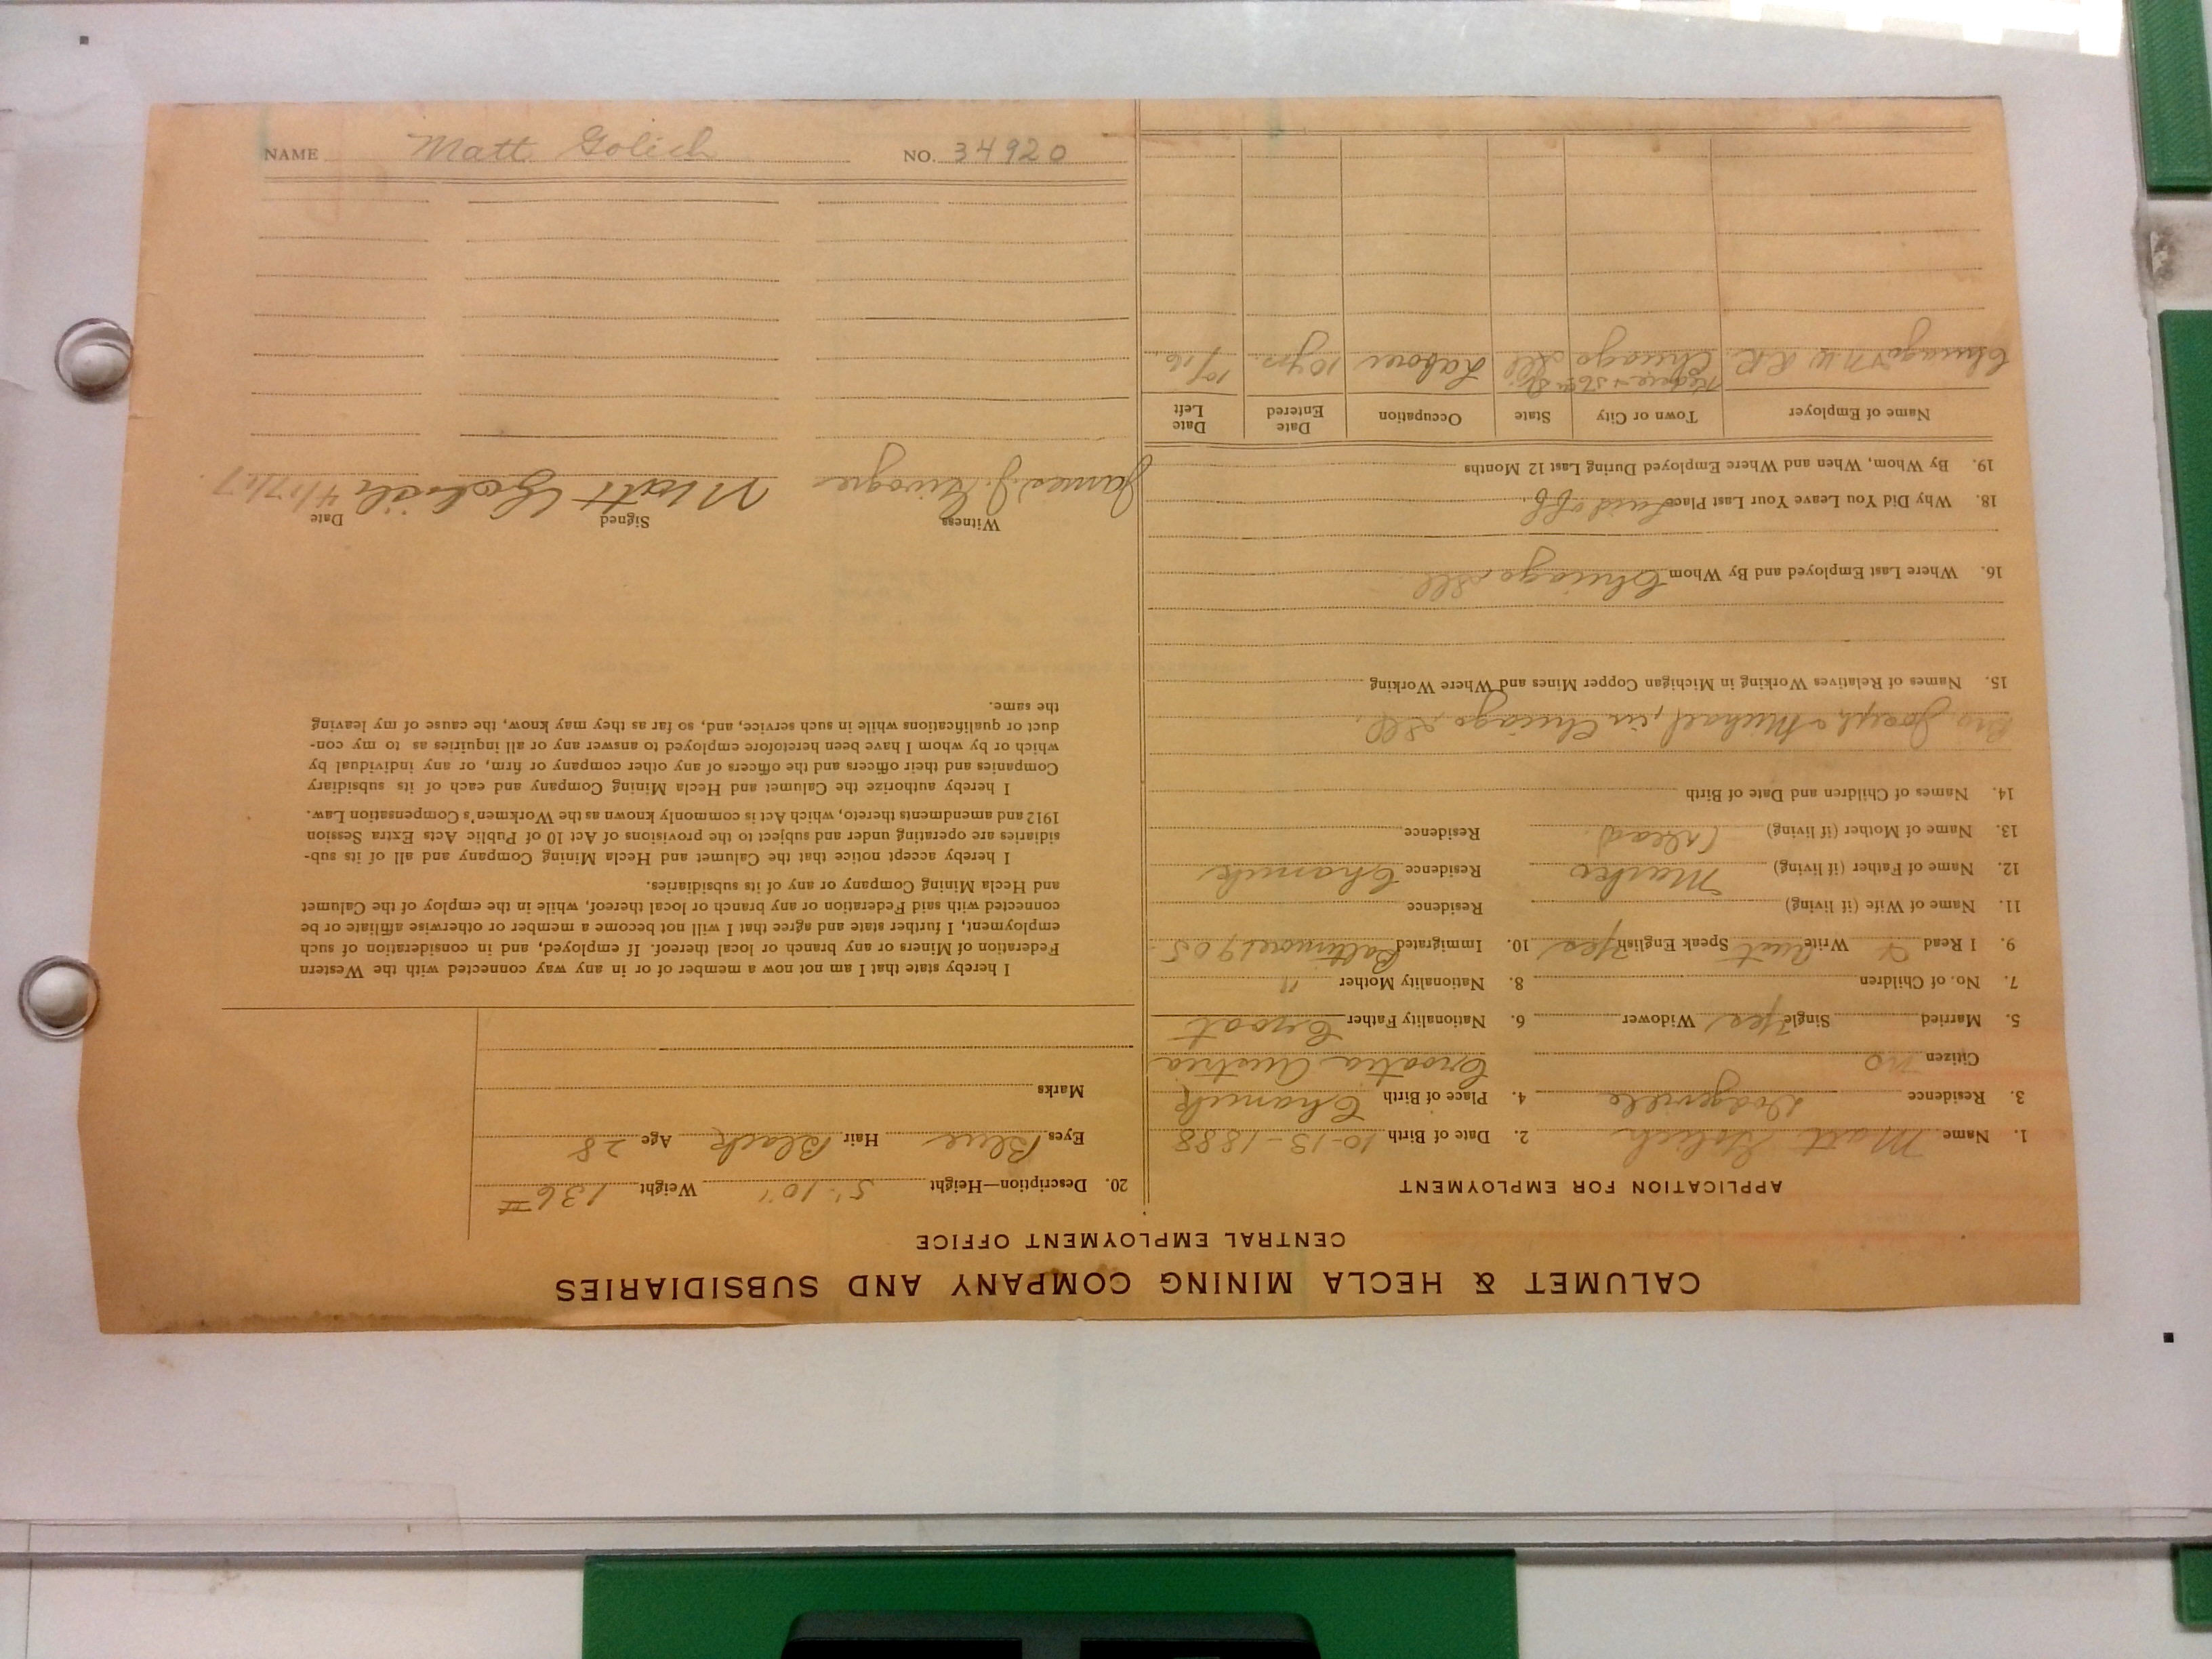 CALUMET & HECLA MINING COMPANY AND SUBSIDIARIES
CENTRAL EMPLOYMENT OFFICE
APPLICATION FOR EMPLOYMENT
1. Name Matt Golich 2. Date of Birth 10-13-1888
3. Residence Dodgeville 4. Place of Birth Chanick
Citizen no Croatia Austria
5. Married Single Yes Widower 6. Nationality Father Croat
7. No. of Children 8. Nationality Mother "
9. I Read & Write Aust Speak English Yes 10. Immigrated Baltimore 1905
11. Name of Wife (if living) Residence
12. Name of Father (if living) Marko Residence Chanick
13. Name of Mother (if living) (dead) Residence
14. Names of Children and Date of Birth
Bro Joseph & Michael, in Chicago Ill.
15. Names of Relatives Working in Michigan Copper Mines and Where Working
16. Where Last Employed and By Whom Chicago Ill
18. Why Did You Leave Your Last Place Laid off.
19. By Whom, When and Where Employed During Last 12 Months
Name of Employer Town or City State Occupation Date Entered Date Left
Chicago & N.W. R.R. Chicago Ill Laborer 10 yrs. 10/16.
20. Description—Height 5'-10" Weight 136#
Eyes Blue Hair Black Age 28
Marks
I hereby state that I am not now a member of or in any way connected with the Western
Federation of Miners or any branch or local thereof. If employed, and in consideration of such
employment, I further state and agree that I will not become a member or otherwise affiliate or be
connected with said Federation or any branch or local thereof, while in the employ of the Calumet
and Hecla Mining Company or any of its subsidiaries.
I hereby accept notice that the Calumet and Hecla Mining Company and all of its sub-
sidiaries are operating under and subject to the provisions of Act 10 of Public Acts Extra Session
1912 and amendments thereto, which Act is commonly known as the Workmen's Compensation Law.
I hereby authorize the Calumet and Hecla Mining Company and each of its subsidiary
Companies and their officers and the officers of any other company or firm, or any individual by
which or by whom I have been heretofore employed to answer any or all inquiries as to my con-
duct or qualifications while in such service, and, so far as they may know, the cause of my leaving
the same.
Witness Signed Date
James J. Matt Golich 4/17/17
NAME Matt Golich NO. 34920